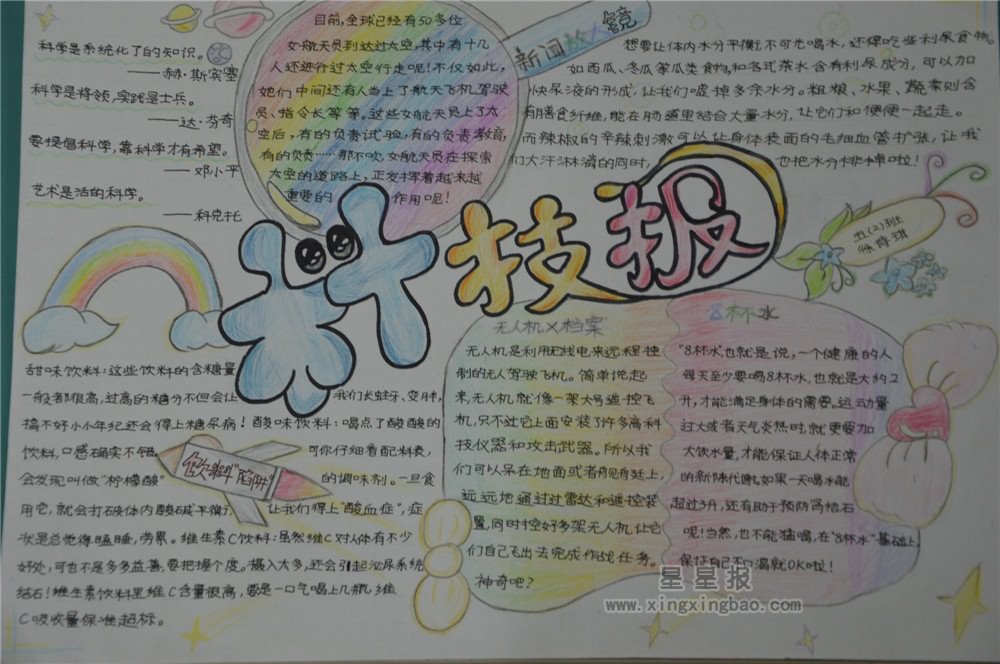 科学是系统化了的知识。
——赫·斯宾塞
科学是将领,实践是士兵。
——达·芬奇
要提倡科学,靠科学才有希望。
——邓小平
艺术是活的科学。
——科克托
目前,全球已经有50多位
女航天员到达过太空,其中有十几
人还进行过太空行走呢!不仅如此,
她们中间还有人当上了航天飞机驾驶
员、指令长等等。这些女航天员上了太
空后,有的负责试验,有的负责教育,
有的负责……那不吹,女航天员在探索
太空的道路上,正发挥着越来越
重要的作用呢!
新闻放大镜
想要让体内水分平衡,不可光喝水,还得吃些利尿食物。
如西瓜、冬瓜等瓜类食物,和各式茶水含有利尿成分,可以加
快尿液的形成,让我们嘘掉多余水分。粗粮、水果、蔬菜则含
有膳食纤维,能在肠道里结合大量水分,让它们和便便一起走。
而辣椒的辛辣刺激可以让身体表面的毛细血管扩张,让我
们大汗淋漓的同时,也把水分排掉啦!
科技报
五(2)班
甜味饮料:这些饮料的含糖量
一般都很高,过高的糖分不但会让我们长蛀牙、变胖,
搞不好小小年纪还会得上糖尿病!酸味饮料:喝点了酸酸的
饮料,口感确实不错可你仔细看配料表,
会发现叫做“柠檬酸”的调味剂。一旦食
用它,就会打破体内酸碱平衡,让我们得上“酸血症”,症
状是总觉得瞌睡,劳累。维生素C饮料:虽然维C对人体有不少
好处,可也不是多多益善,要把握个度。摄入太多,还会引起泌尿系统
结石!维生素饮料里维C含量很高,要是一口气喝上几瓶,维
C吸收量保准超标。
饮料“陷阱”
无人机X档案
无人机是利用无线电来远程控
制的无人驾驶飞机。简单说起
来,无人机就像一架大号遥控飞
机,只不过它上面安装了许多高科
技仪器和攻击武器。所以我
们可以呆在地面或者船舰廷上,
远远地通过过雷达和遥控装
置,同时控好多架无人机,让它
们自己飞出去完成作战任务。
神奇吧?
8杯水
“8杯水”,也就是说,一个健康的人
每天至少要喝8杯水,也就是大约2
升,才能满足身体的需要。运动量
过大或者天气炎热时,就更要加
大饮水量,才能保证人体正常
的新陈代谢,如果一天喝水能
超过3升,还有助于预防肾结石
呢!当然,也不能猛喝,在“8杯水”基础上
保证自己不渴就OK啦!
星星报
www.xingxingbao.com